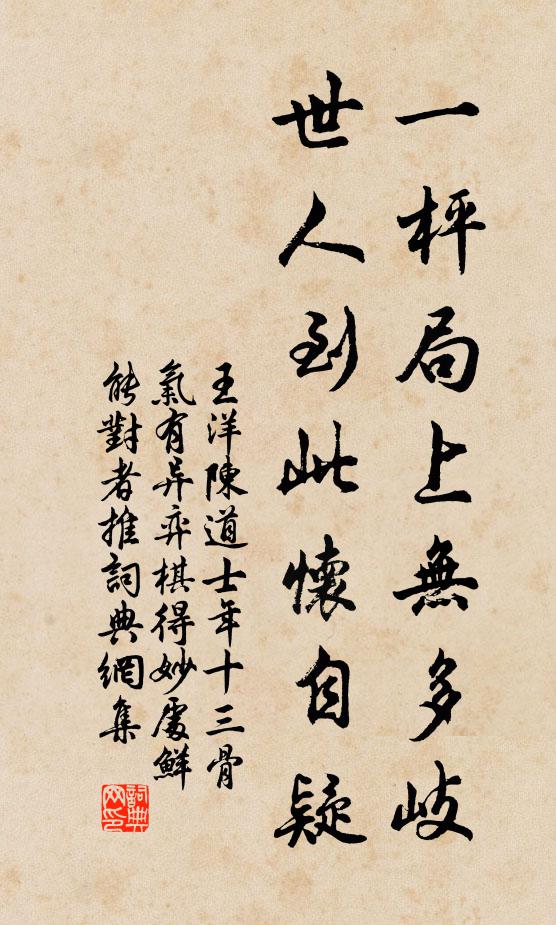 一枰局上無多岐
世人到此懷自疑
王洋陳道士年十三骨
氣有异弈棋得妙處鮮
能對者推詞典網集
詞典
网印